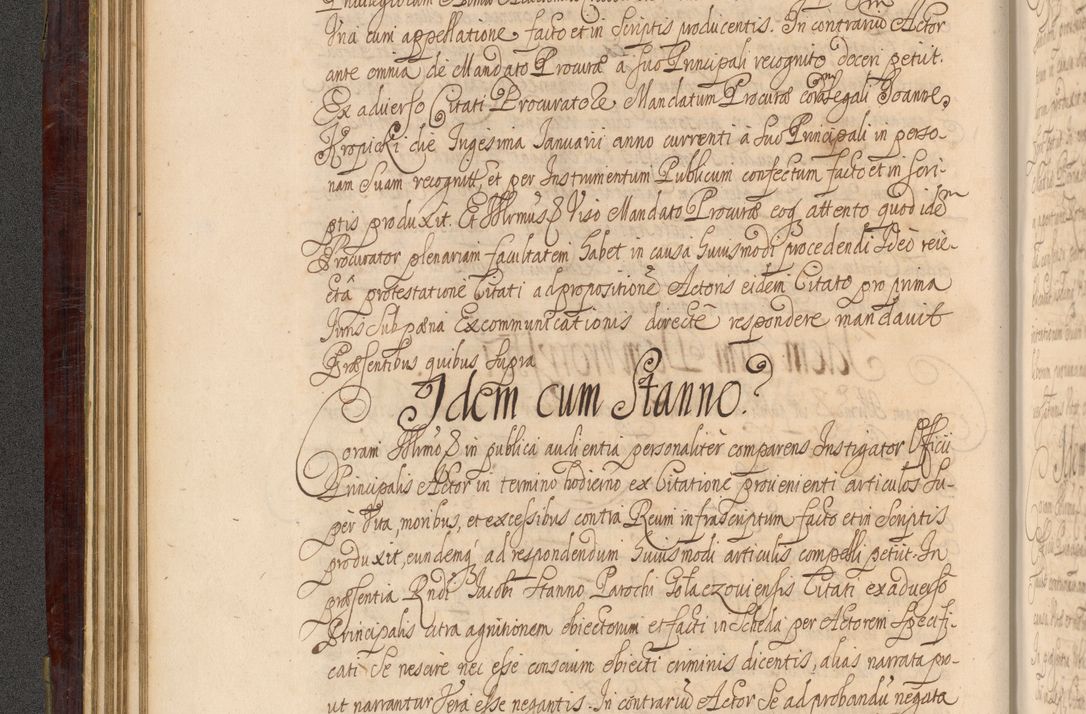 Iria cum appellatione facto et in Scriptis producentis. In contrariũ Actor
ante omnia de Mandato Procurae a suo Principali recognito doceri petiit.
Ex aduerso Citati Procurator Mandatum Procurae coram Legali Joanne
Kropicki die Ingesima Ianuarii anno currenti a Suo Principali in perso-
nam Suam recognitũ, et per Instrumentum Publicum confectum facto et in scri-
ptis produxit. Et Illrmus D Viso Mandato Procurae eoq attento quod idem
Procurator plenariam facultatem habet in causa huiusmodi procedendi Ideo reie-
cta protestatione Citati ad propositionẽ Actoris eidem Citato pro prima
Iuris Sub paena Excommunicationis directe respondere mandauit
Praesentibus quibus Supra
Idem cum Stanno
Coram Illrmo D in publica audientia personaliter comparens Instigator Officii
Principalis Actor in termino hodierno ex Citatione prouenienti articulos Su-
per Vita, moribus, et excessibus contra Reum infrascriptum facto et in Scriptis
produxit, eundemq ad respondendum huiusmodi articulis compelli petiit. In
praesentia Rndi Jacobi Stanno Parochi Golaczouiensis Citati ex aduerso
Principalis citra agnitionem obiectorum et facti in Scheda per Actorem Specifi-
cati Se nescire nec esse conscium obiecti criminis dicentis, alias narrata pro-
ut narrantur Vera esse negantis. In contrariũ Actor Se ad probandũ negata